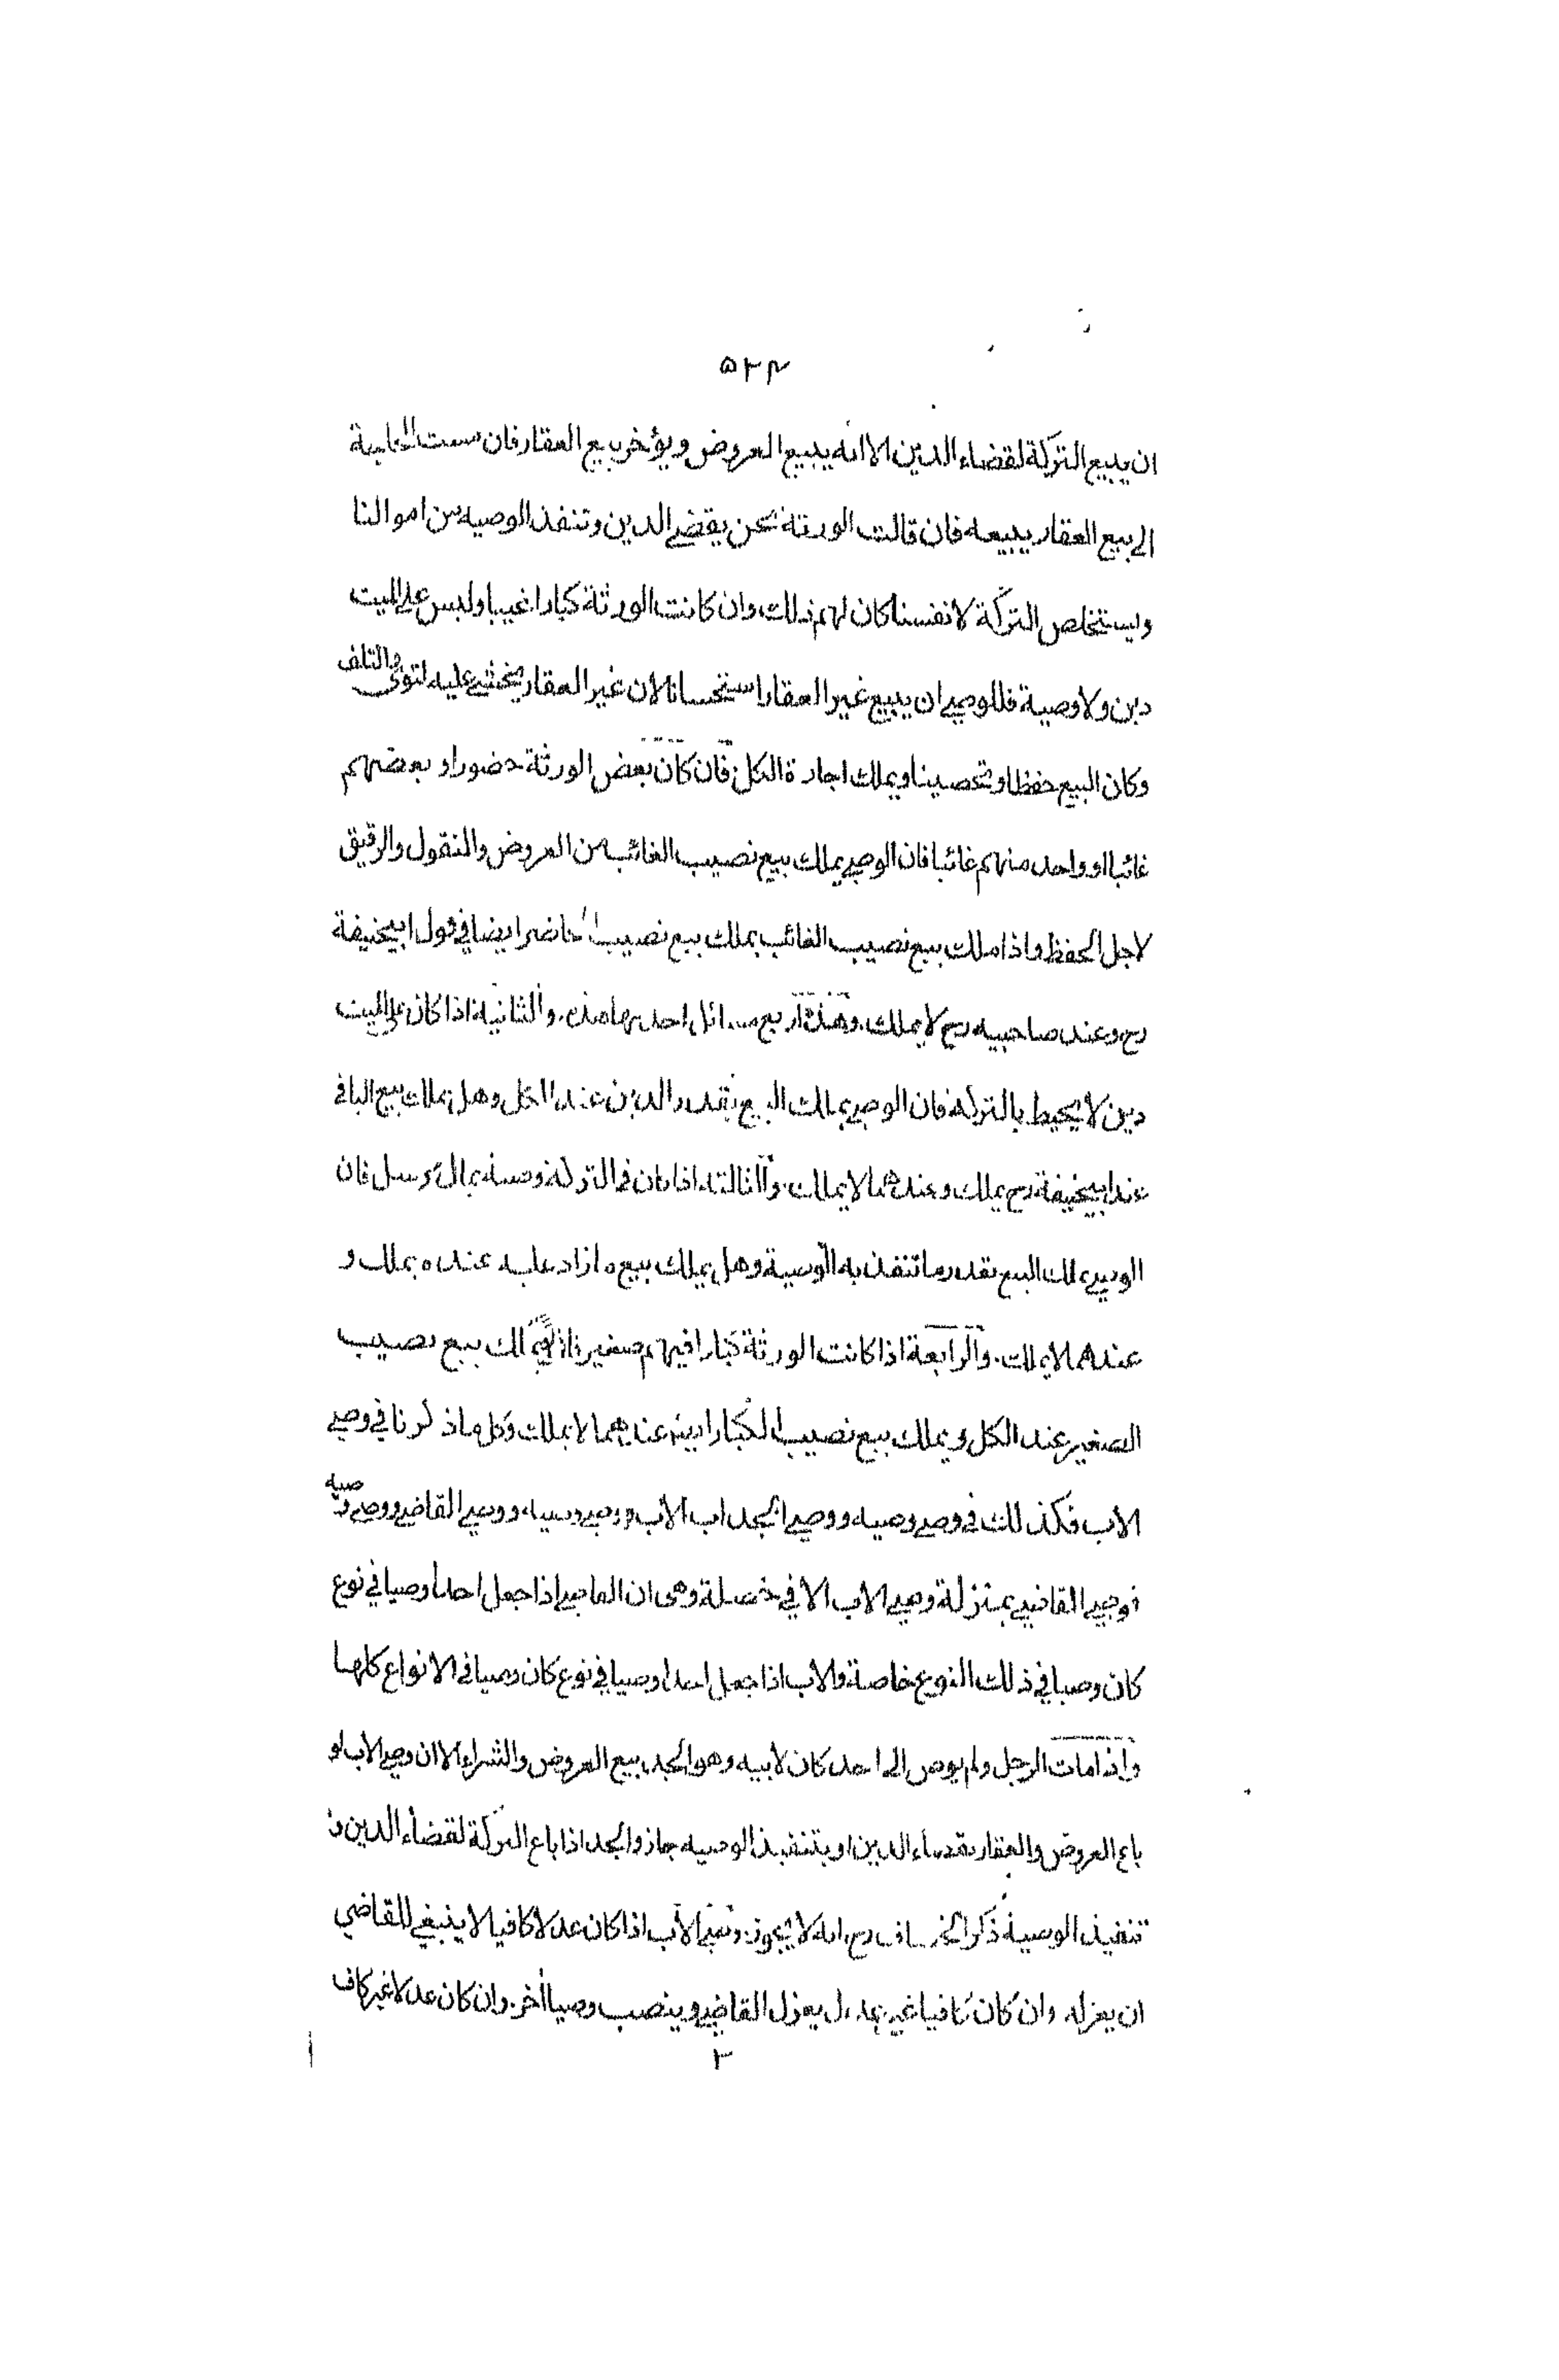 ۵۲۴
ان يبيع التركة لقضاء الدين الا انه يبيع العروض ويؤخر بيع العقار فان مست الحاجة
الى بيع العقار يبيعه فان قالت الورثة نحن يقضى الدين وتنفذ الوصيه من اموالنا
ويستخلص التركة لانفسنا كان لهم ذلك وان كانت الورثة كبارا غيبا وليس على الميت
دين ولا وصية فللوصي ان يبيع غير العقار استحسانا لان غير العقار يخشى عليه التوى والتلف
وكان البيع حفظا وتحصينا ويملك اجارة الكل فان كان بعض الورثة حضورا وبعضهم
غائبا او واحد منهم غائبا فان الوصي يملك بيع نصيب الغائب من العروض والمنقول والرقيق
لاجل الحفظ واذا ملك بيع نصيب الغائب يملك بيع نصيب الحاضر ايضا في قول ابيحنيفة
رح وعند صاحبيه رح لا يملك وهذه اربع مسائل احديها هذه والثانية اذا كان على الميت
دين لا يحيط بالتركة فان الوصي يملك البيع بقدر الدين عند الكل وهل يملك بيع الباقي
عند ابيحنيفة رح يملك وعندهما لا يملك والثالثة اذا كان في التركة وصية بمال مرسل فان
الوصي يملك البيع بقدر ما تنفذ به الوصية وهل يملك بيع ما زاد عليه عنده يملك و
عندهما لا يملك والرابعة اذا كانت الورثة كبارا فيهم صغير فانه يملك بيع نصيب
الصغير عند الكل ويملك بيع نصيب الكبار ايضا عندهما لا يملك وكل ما ذكرنا في وصي
الاب فكذلك في وصي وصيه ووصي الجد اب الاب ووصي وصيه ووصي القاضي ووصي وصيه
فوصي القاضي بمنزلة وصي الاب الا في خصلة وهي ان القاضي اذا جعل احدا وصيا في نوع
كان وصيا في ذلك النوع خاصة والاب اذا جعل احدا وصيا في نوع كان وصيا في الانواع كلها
واذا مات الرجل ولم يوص الى احد كان لابيه وهو الجد بيع العروض والشراء الا ان وصي الاب لو
باع العروض والعقار بقضاء الدين او بتنفيذ الوصيه جاز والجد اذا باع التركة لقضاء الدين و
تنفيذ الوصية ذكر الخصاف رح انه لا يجوز وصي الاب اذا كان عدلا كافيا لا ينبغي للقاضي
ان يعزله وان كان كافيا غير عدل يعزل القاضي وينصب وصيا آخر وان كان عدلا غير كاف
۲